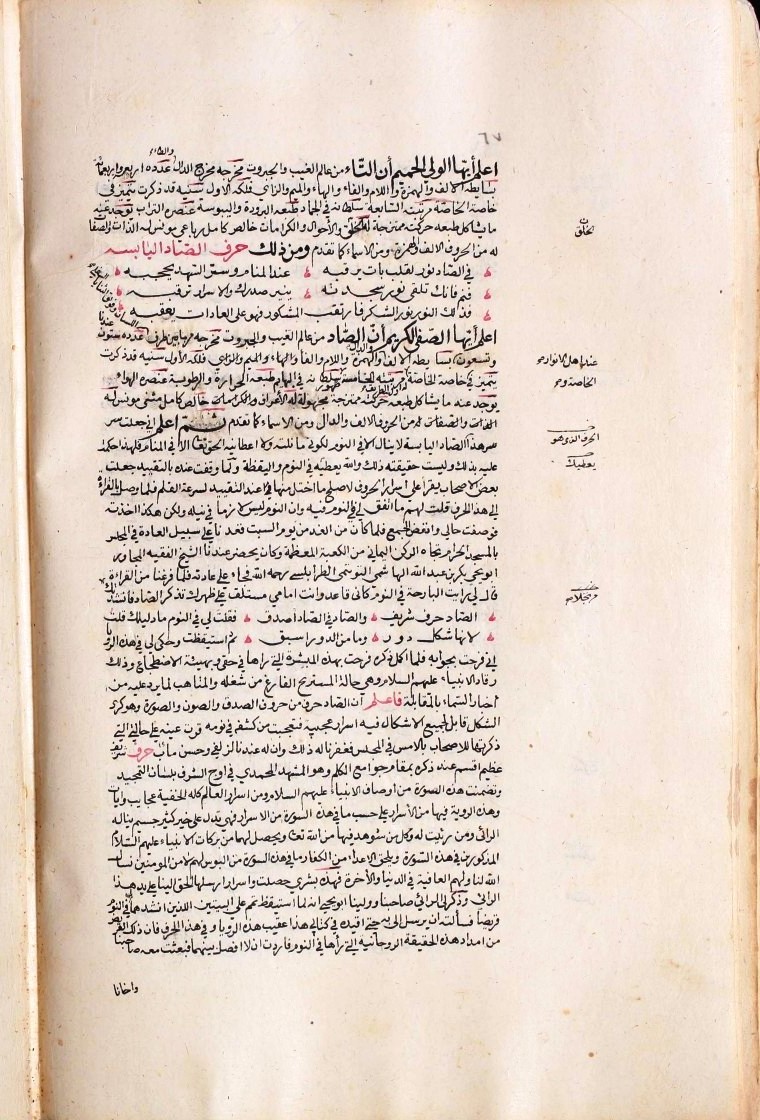 ٦٧
والطاء
اعلم أيها الولي الحميم أن التاء من عالم الغيب والجبروت مخرجه مخرج الدال عدده اربع واربعمائة
بسايطه الالف والهمزة واللام والفاء والهاء والميم والزاى فلكه الاول سنيه قد ذكرت يتميز في
خاصة الخاصة مرتبته السابعة سلطانه في الجماد طبعه البرودة واليبوسة عنصره التراب يوجد عنه
ما يشاكل طبعه حركته ممتزجة له الخلق والأحوال والكرامات خالص كامل رباعي مونس له الذات والصفات
له من الحروف الالف والهمزة ومن الاسماء كما تقدم ومن ذلك حرف الصاد اليابسه
في الصاد نور لقلب بات يرقبه عند المنام وستر السهد يحجبه
فنم فانك تلقى نور سجدته ينير صدرك والاسرار ترقبه
فذلك النور نور الشكر فارتقب المشكور فهو على العادات يعقبه
اعلم أيها الصفي الكريم أن الصاد من عالم الغيب والجبروت مخرجه مما بين طرفي عدده ستون
وتسعون بسايطه الالف والهمزة واللام والفاء والهاء والميم والزاى فلكه الأول سنيه قد ذكرت
يتميز في خاصة الخاصة مرتبته الخامسة سلطانه في البهايم طبعه الحرارة والرطوبة عنصره الهواء
يوجد عنه ما يشاكل طبعه حركته ممتزجة مجهولة له الأعراف والكرامات خالص كامل مثنى مونس له
الذات والصفات له من الحروف الالف والدال ومن الاسماء كما تقدم ثم اعلم اني جعلت سر
سر هذا الصاد اليابسة لا ينال الا في النوم لكوني ما نلته ولا اعطانيه الحق تعالى الا في المنام فلهذا حكمت
عليه بذلك وليست حقيقته ذلك والله يعطيه في النوم واليقظة ولما وقفت عنده بالتقييد جعلت
بعض الاصحاب يقرأ على اسرار الحروف لاصلح ما اختل منها في عند التقييد لسرعة القلم فلما وصل بالقراءة
الى هذا الحرف قلت لهم ما اتفق لي في النوم فيه وان النوم ليس لازما في نيله ولكن هكذا اخذته
فوصفت حالي وانفض الجمع فلما كان من الغد من يوم السبت فقعدنا على سبيل العادة في المجلس
بالمسجد الحرام تجاه الركن اليماني من الكعبة المعظمة وكان يحضر عندنا الشيخ الفقيه المجاور
ابو يحي بكر بن عبد الله الهاشمي التوسمي الطرابلسي رحمه الله فجاء على عادته فلما فرغنا من القراءة
قال لي رايت البارحة في النوم كاني قاعد وانت امامي مستلق على ظهرك تذكر الصاد فانشدتك
الصاد حرف شريف والصاد في الصاد اصدق فقلت لي في النوم ما دليلك فقلت
لانها شكل دور وما من الدور اسبق ثم استيقظت وحكى لي في هذه الرويا
اني فرحت بجوابه فلما اكمل ذكره فرحت بهذه المبشرة التي رآها في حقي وبهيئة الاضطجاع وذلك
رقاد الانبياء عليهم السلام وهي حالة المستريح الفارغ من شغله والمتاهب لما يرد عليه من
اخبار السماء بالمقابلة فاعلم أن الصاد حرف من حروف الصدق والصون والصورة وهو كرى
الشكل قابل لجميع الاشكال فيه اسرار عجيبة فتعجبت من كشفه في نومه قرت عينه على حالتي التي
ذكرتها للاصحاب بالامس في المجلس فغفرنا له ذلك وان له عندنا لزلفى وحسن مآب حرف شريف
عظيم اقسم عند ذكره بمقام جوامع الكلم وهو المشهد المحمدي في اوج الشرف بلسان التمجيد
وتضمنت هذه الصورة من أوصاف الانبياء عليهم السلام ومن اسرار العالم كله الخفية عجايب وايات
وهذه الروية فيها من الأسرار على حسب ما في هذه السورة من الاسرار فهي تدل على خير كثير جسيم يناله
الرائى ومن رئيت له وكل من شوهد فيها من الله تعالى ويحصل لهما من بركات الانبياء عليهم السلام
المذكورين في هذه السورة ويلحق الاعداء من الكفار ما في هذه السورة من البوس لهم لا من المومنين نسال
الله لنا ولهم العافية في الدنيا والأخرة فهذه بشرى حصلت واسرار ارسلها الحق الينا على يد هذا
الرائى وذكر لي الرائى صاحبنا وولينا ابو يحي انه لما استيقظ تمم على البيتين اللذين انشدهما في النوم
قريضا فسألته ان يرسل الى به حتى اقيده في كتابي هذا عقيب هذه الرويا وفي هذا الحرف فان ذلك القريض
من امداد هذه الحقيقة الروحانية التي رآها في النوم فاردت ان لا افصل بينهما فبعثت معه صاحبنا
واخانا
الخلق
عند اهل الانوار
الخاصة و
الحرف الذي هو
يعطيك